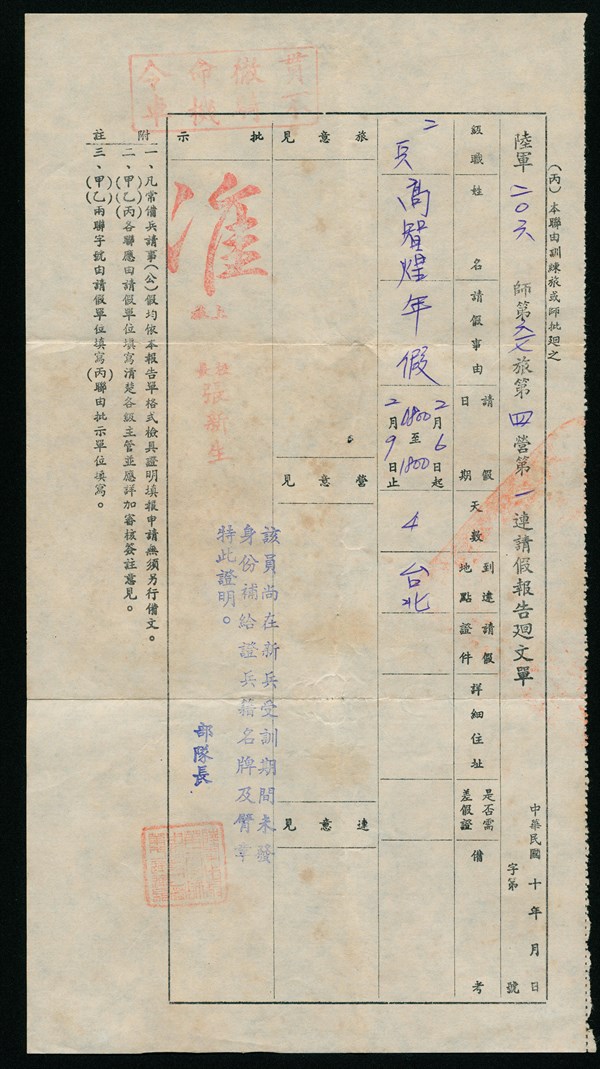 (丙)本聯由訓練旅或師批廻之
陸軍二〇六師第 旅第四營第一連請假報告廻文單
中華民國 十年 月 日
字第 號
級職
姓名
請假事由
請假日期
天數
到達地點
請假證件
詳細住址
是否需差假證
備考
二兵
高智煌
年假
2月6日起
0800至1800
2月9日止
4
台北
旅意見
營意見
連意見
批示
准
上旅
張新生
該員尚在新兵受訓期間未發
身份補給證兵籍名牌及臂章
特此證明。
部隊長
附註
一、凡常備兵請事(公)假均依本報告單格式檢具證明填報申請無須另行備文。
二、(甲)(乙)(丙)各聯應由請假單位填寫清楚各級主管並應詳加審核簽註意見。
三、(甲)(乙)兩聯字號由請假單位填寫(丙)聯由批示單位填寫。
貫徹命令